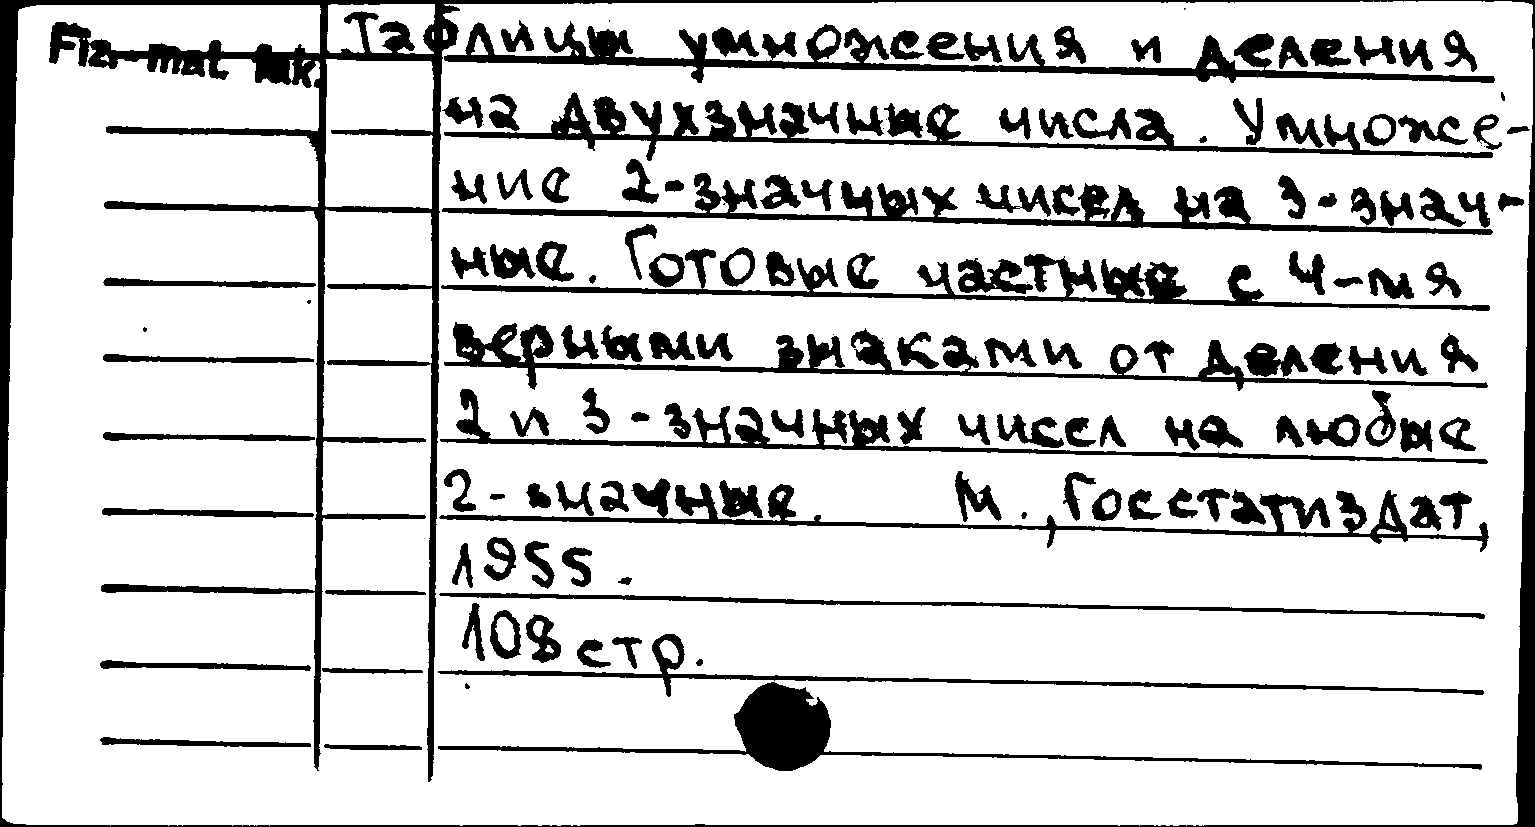 Fiz.-mat. fak.
Таблицы умножения и деления
на двухзначные числа. Умноже-
ние 2-значных чисел на 3-знач-
ные. Готовые частные с 4-мя
верными знаками от деления
2 и 3-значных чисел на любые
2-значные. М., Госстатиздат,
1955.
108 стр.